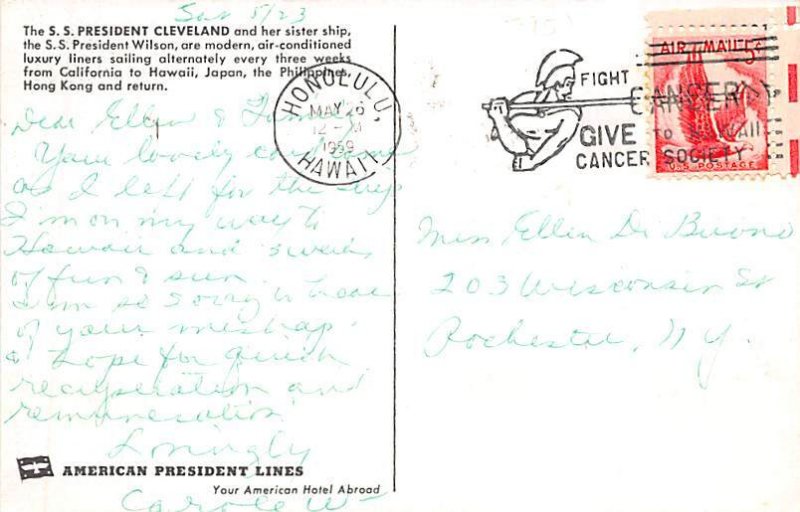 Sat 5/23
The S. S. PRESIDENT CLEVELAND and her sister ship,
the S. S. President Wilson, are modern, air-conditioned
luxury liners sailing alternately every three weeks
from California to Hawaii, Japan, the Philippines,
Hong Kong and return.
Dear Ellen &
Your lovely card came
as I left for the ship
I'm on my way to
Hawaii and 3 weeks
of fun & sun.
I am so sorry to hear
of your mishap
& hope for quick
recuperation and
remuneration
Lovingly
Carole W-
AMERICAN PRESIDENT LINES
Your American Hotel Abroad
HONOLULU,
MAY 26
12 - M
1959
HAWAII
FIGHT
CANCER
GIVE to
CANCER SOCIETY
AIR MAIL 5¢
U.S. POSTAGE
Miss Ellen Di Buono
203 Wisconsin St
Rochester, N y.